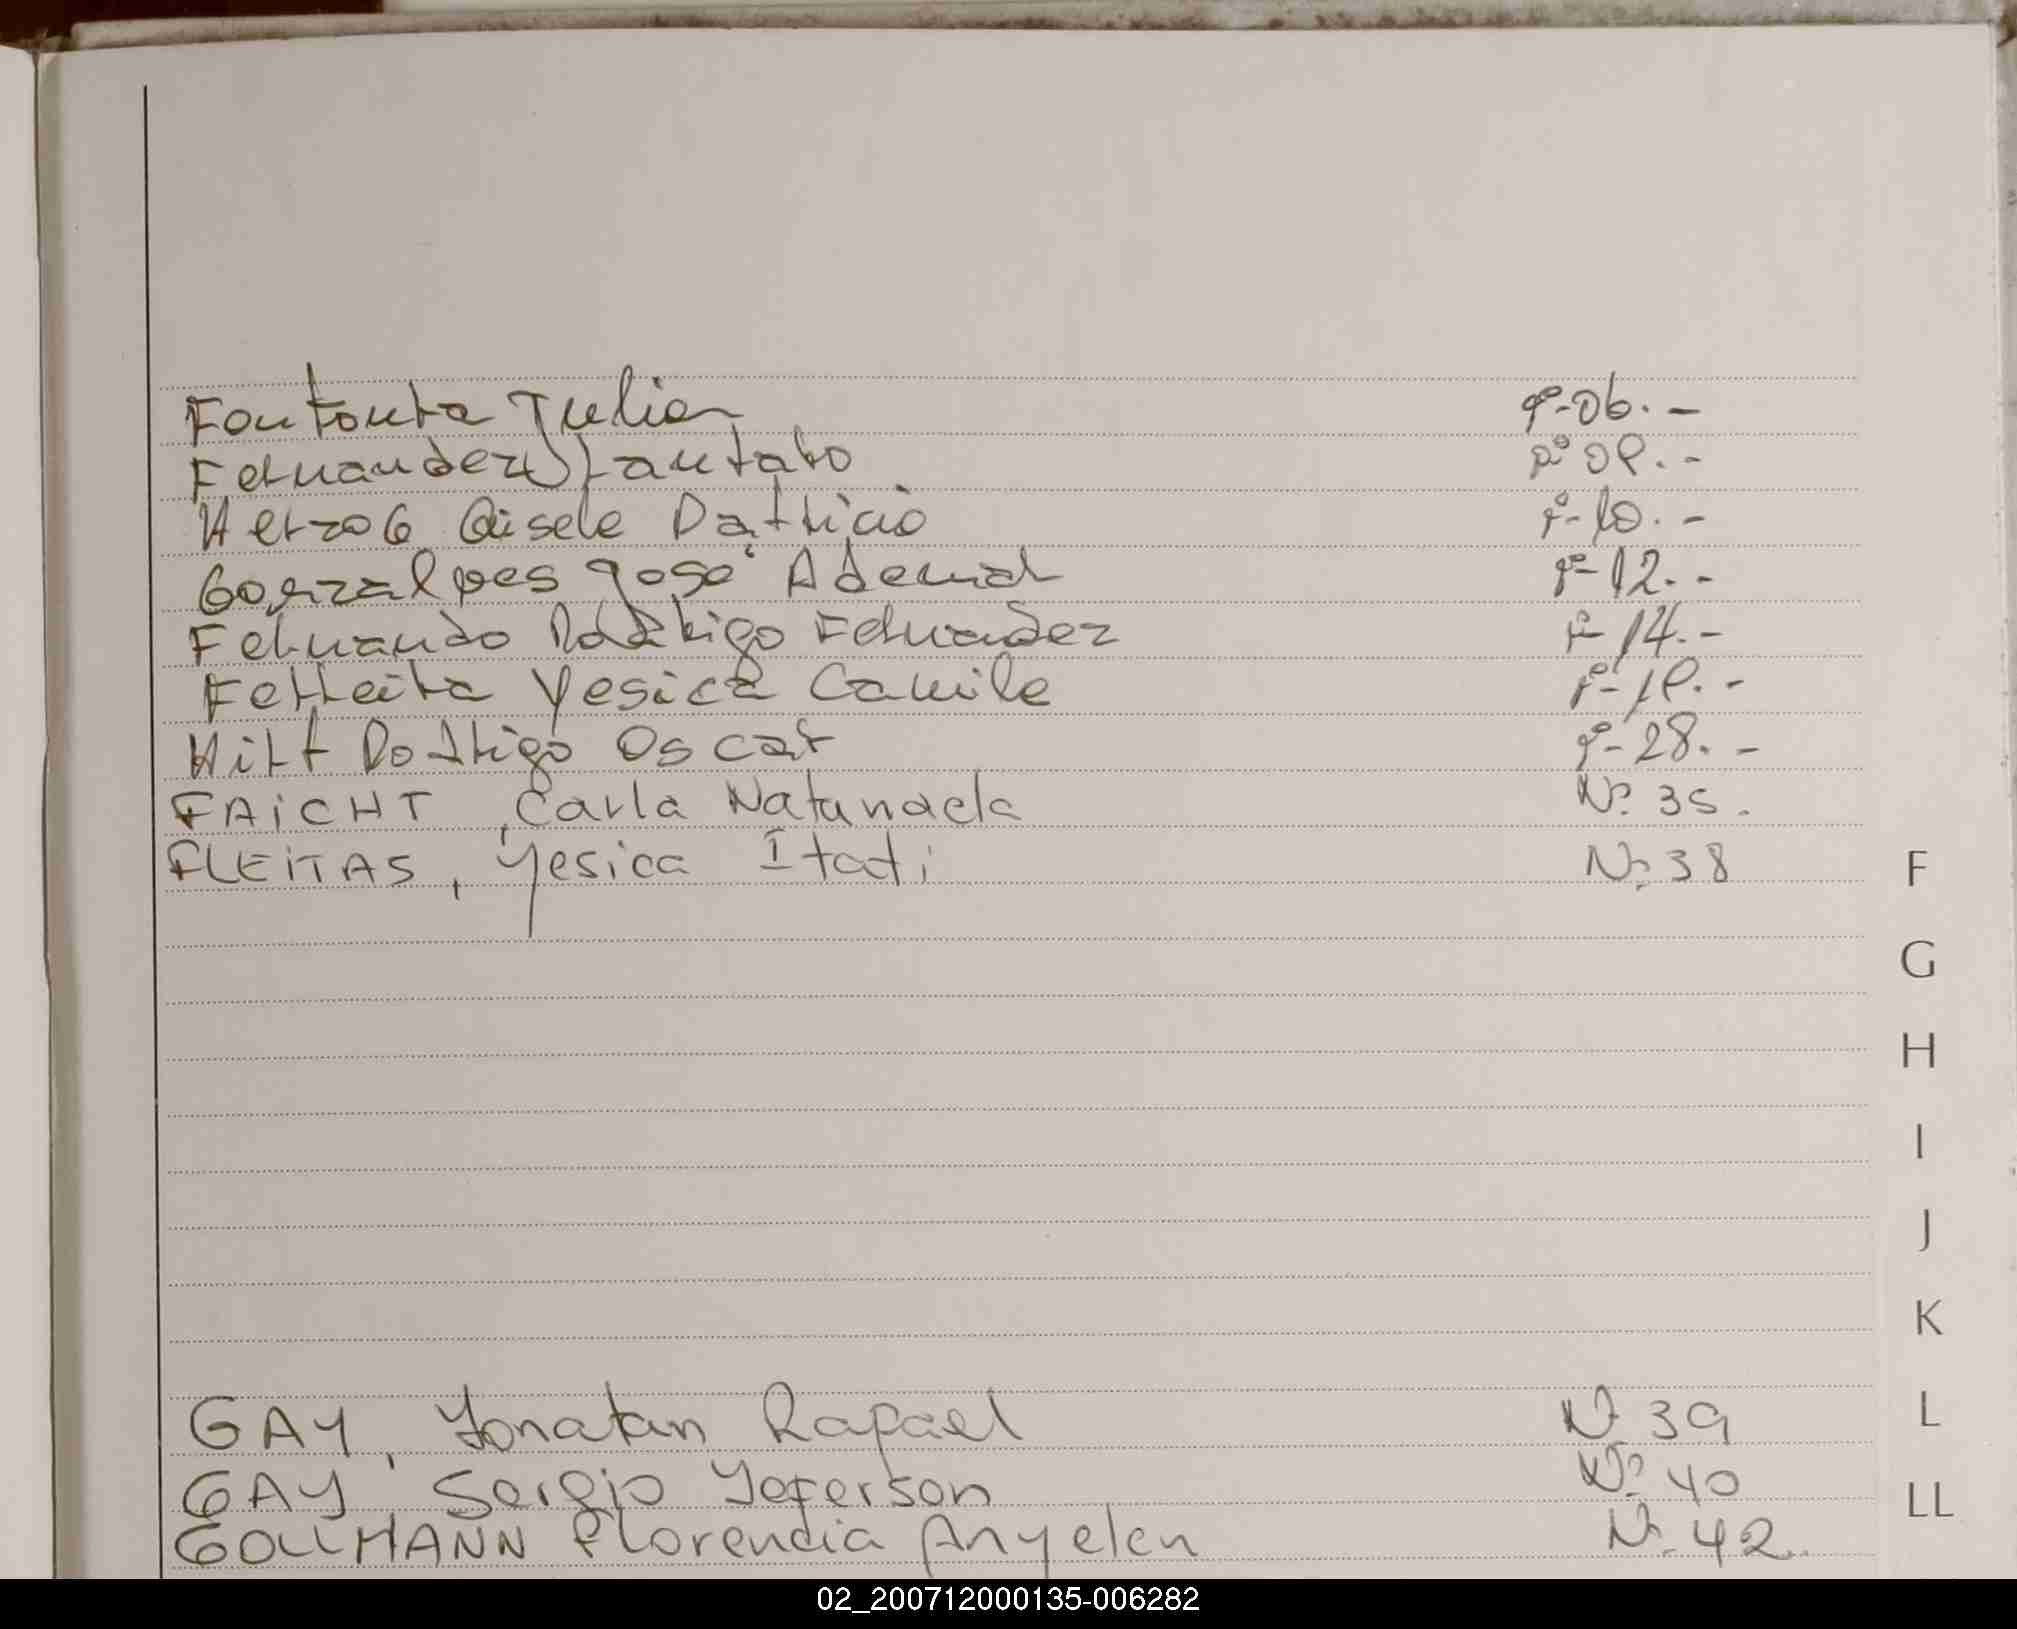 Fontoura Julian Nº-06.-
Fernandez Lautaro Nº 09.-
Herzog Gisele Patricia Nº-10.-
Gonzalves José Ademar Nº-12.-
Fernando Rodrigo Fernandez Nº-14.-
Ferreira Yesica Camila Nº-19.-
Hirt Rodrigo Oscar Nº-28.-
FAiCHT, Carla Natanaela Nº 35.
FLEiTAS, Yesica Itati Nº 38
F
G
H
I
J
K
GAY, Yonatan Rafael Nº 39
L
GAY Sergio Yeferson Nº 40
LL
GOLLMANN Florencia Anyelen Nº 42.
02_200712000135-006282